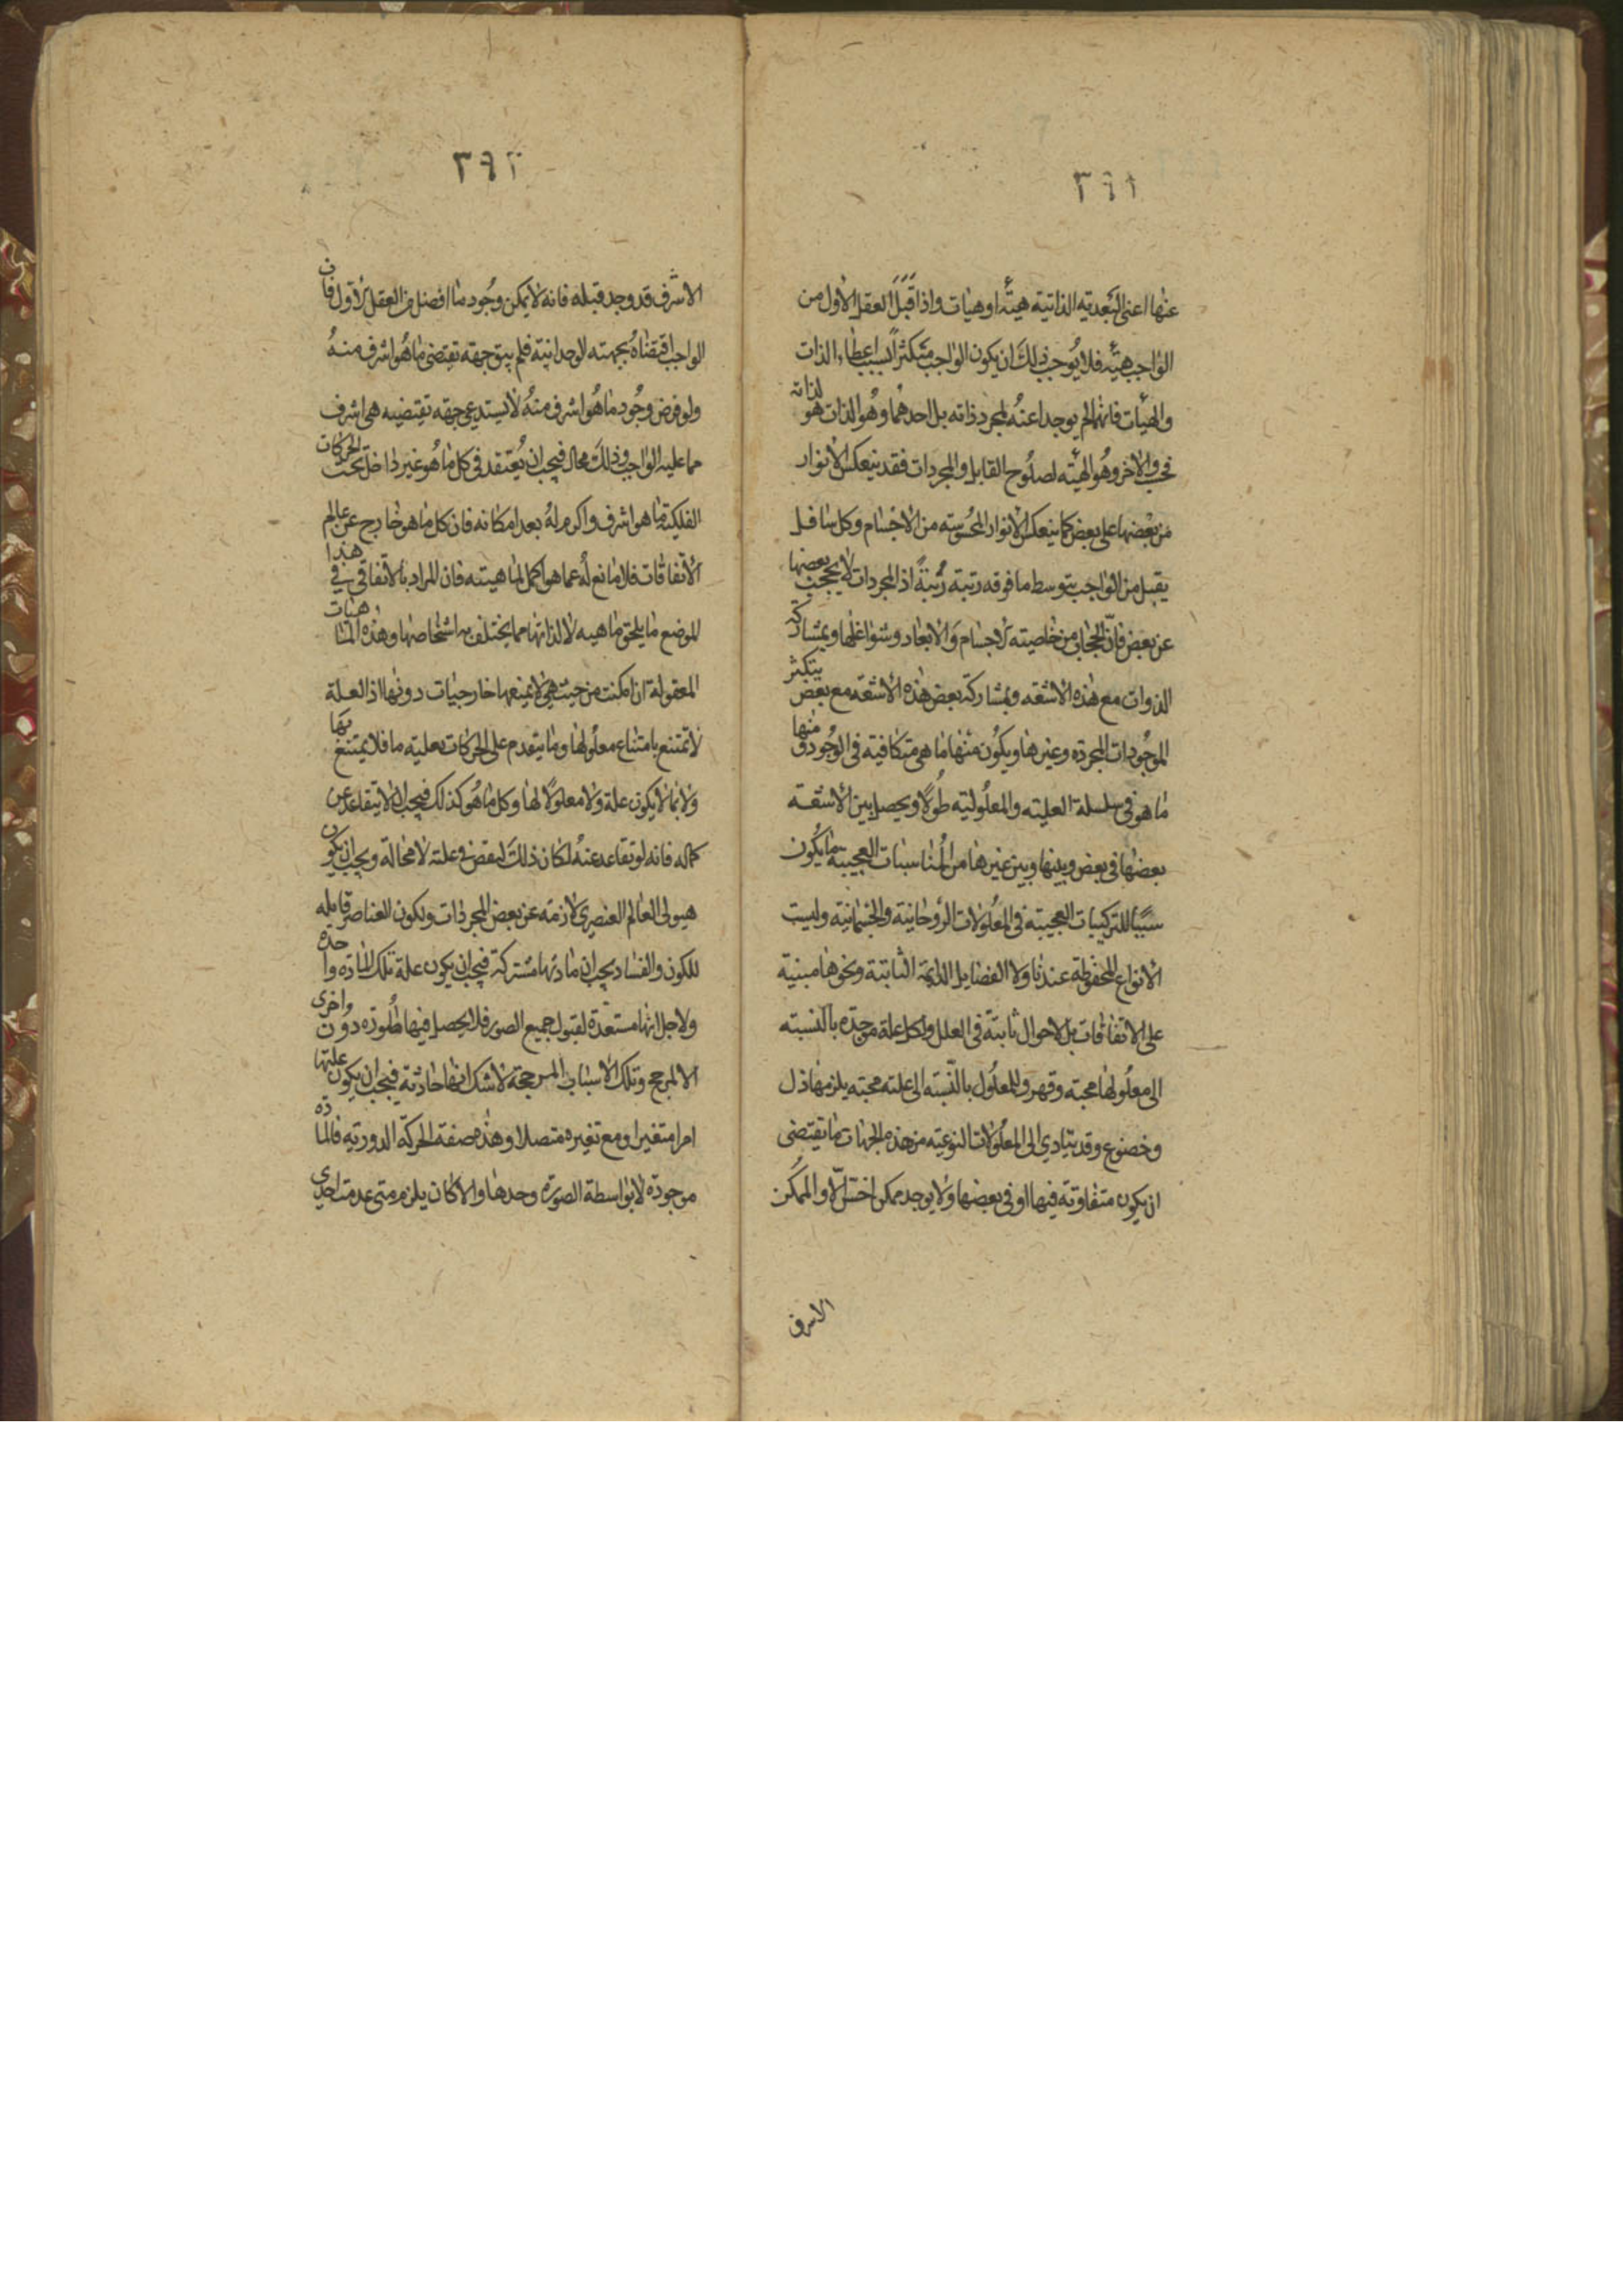 ٣٩١
عنها اعني البعدية الذاتية هيئة او هيئات واذا قبل العقل الاول من
الواجب هيئة فلا يوجب ذلك ان يكون الواجب متكثرا بسبب اعطاء الذات
والهيات فانهما لم يوجدا عنه لمجرد ذاته بل احدهما وهو الذات هو لذاته
فحسب والاخر وهو الهيئة لصلوح القابل والمجردات فقد ينعكس الانوار
من بعضها على بعض كما ينعكس الانوار المحسوسة من الاجسام وكل سافل
يقبل من الواجب بتوسط ما فوقه رتبة رتبة اذ المجردات لا يحجب بعضها
عن بعض فان الحجاب من خاصية الاجسام والابعاد وشواغلها وبمشاركة
الذوات مع هذه الاشعة وبمشاركة بعض هذه الاشعة مع بعض يتكثر
الموجودات المجردة وغيرها ويكون منها ما هى متكافية فى الوجود ومنها
ما هو فى سلسلة العلية والمعلولية طولا ويحصل بين الاشعة
بعضها فى بعض وبينها وبين غيرها من المناسبات العجيبة ما يكون
سببا للتركيبات العجيبة فى المعلولات الروحانية والجسمانية وليست
الانواع المحفوظة عندنا ولا الفضايل الدايمة الثابتة ونحوها مبنية
على الاتفاقات بل لاحوال ثابتة فى العلل ولكل علة موجدة بالنسبة
الى معلولها محبة وقهر وللمعلول بالنسبة الى علته محبة يلزمها ذل
وخضوع وقد يتادي الى المعلولات النوعية من هذه الجهات ما يقتضى
ان يكون متفاوتة فيها او فى بعضها ولا يوجد ممكن اخس الا والممكن
الاشرف
٣٩٢
الاشرف قد وجد قبله فانه لا يمكن وجود ما افضل من العقل الاول فان
الواجب اقتضاه بجهته الوحدانية فلم يبق جهة تقتضى ما هو اشرف منه
ولو فرض وجود ما هو اشرف منه لا يستدعى جهة تقتضيه هى اشرف
مما عليه الواجب وذلك محال فيجب ان يعتقد فى كل ما هو غير داخل تحت الحركات
الفلكية ما هو اشرف واكرم له بعد امكانه فان كل ما هو خارج عن عالم
الاتفاقات فلا مانع له عما هو اكمل لماهيته فان المراد بالاتفاقى في هذا
الموضع ما يلحق ماهيه لا لذاتها مما يختلف به اشخاصها وهذه الماهيات
المعقولة ان امكنت من حيث هى لا يمنعها خارجيات دونها اذ العلة
لا تمتنع بامتناع معلولها وما يتقدم على الحركات بعلية ما فلا يمتنع بها
ولا بما لا يكون علة ولا معلولا لها وكل ما هو كذلك فيجب ان لا يتقاعد عن
كماله فانه لو تقاعد عنه لكان ذلك لنقص فى علته لا محالة ويجب ان يكون
هيولى العالم العنصرى لازمة عن بعض المجردات ولكون العناصر قابلة
للكون والفساد يجب ان مادتها مشتركة فيجب ان يكون علة تلك المادة واحده
ولاجل انها مستعدة لقبول جميع الصور فلا يحصل فيها صورة دون اخرى
الا لمرجح وتلك الاسباب المرجحة لا شك انها حادثة فيجب ان يكون علتها
امرا متغيرا ومع تغيره متصلا وهذه صفة الحركة الدورية فالمادة
موجودة لا بواسطة الصورة وحدها والا كان يلزم متى عدمت احدى